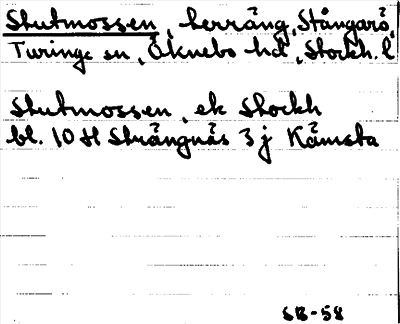 Slutmossen, terräng, Stångarö,
Turinge sn, Öknebo hd, Stockh. l
Slutmossen, ek Stockh
bl. 10 H Strängnäs 3 j Kämsta
SB-58